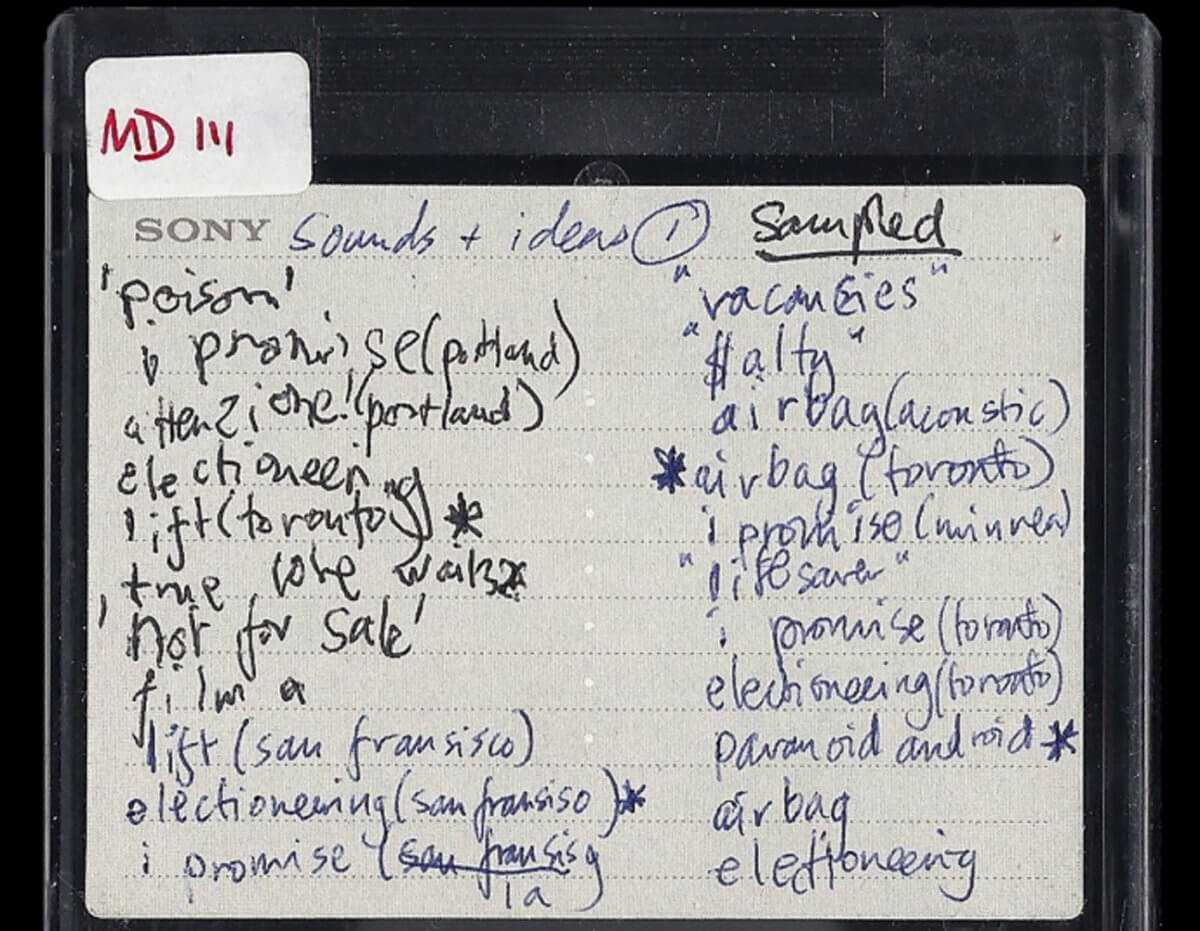 MD 111
SONY sounds + ideas ① sampled
'poison'
i promise (portland)
attenzione! (portland)
electioneering
lift (toronto) *
true love waits *
'not for sale'
film a
lift (san fransisco)
electioneering (san fransiso) *
i promise (san fransis
la
"vacansies"
"$alty"
airbag (acoustic)
*airbag (toronto)
i promise (minnea)
"lifesaver"
i promise (toronto)
electioneering (toronto)
paranoid android *
airbag
electioneering